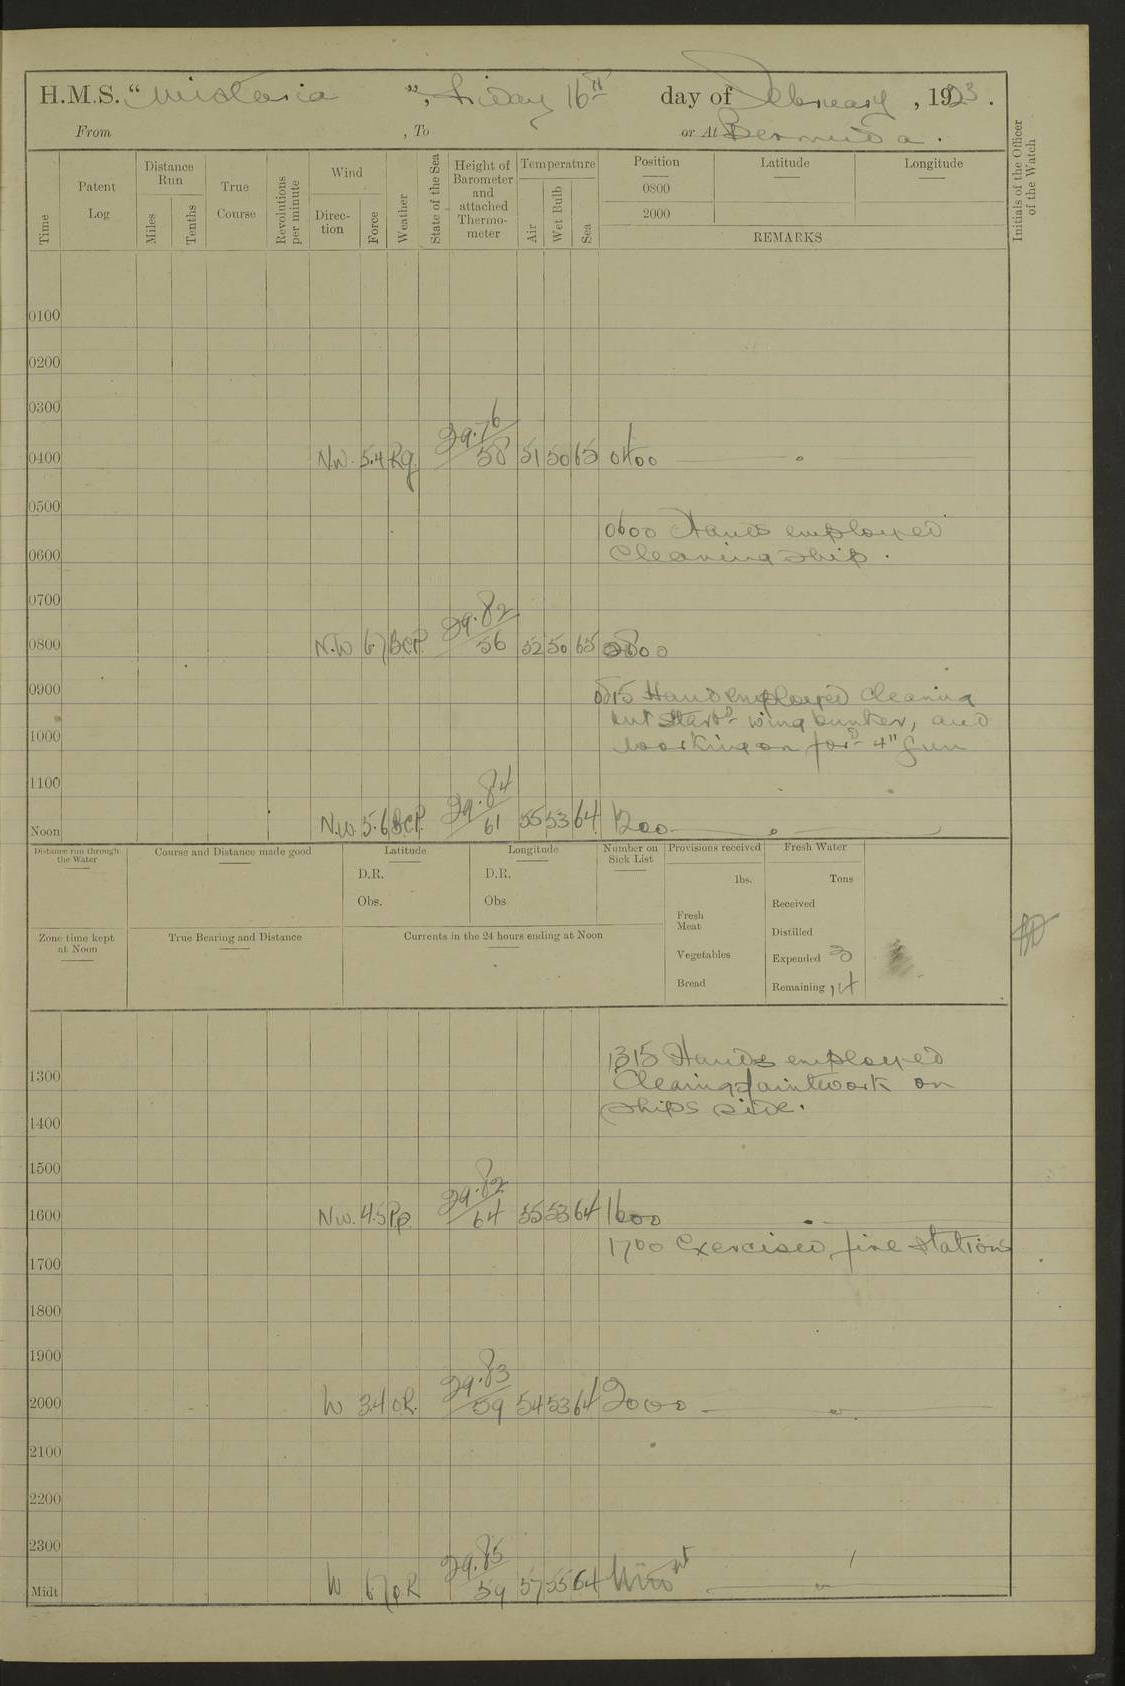 H.M.S. “Wistaria”, Friday 16th day of February, 1923.
From , To or At Bermuda.
Time
Patent Log
Distance Run
Miles
Tenths
True Course
Revolutions per minute
Wind
Direc-tion
Force
Weather
State of the Sea
Height of Barometer and attached Thermo-meter
Temperature
Air
Wet Bulb
Sea
Position
Latitude
Longitude
0800
2000
REMARKS
Initials of the Officer of the Watch
0100
0200
0300
0400 N.W. 5.4 Rq. 29.76/58 51 50 65 0400
0500
0600 Hands employed
0600
Cleaning ship.
0700
0800 N.W 6.7 BCP. 29.82/56 52 50 65 0800
0900
0815 Hands employed cleaning
out Starbd wing bunker, and
1000
working on ford 4" gun
1100
Noon N.W. 5.6 BCP. 29.84/61 55 53 64 1200
Distance run through the Water
Course and Distance made good
Latitude
D.R.
Obs.
Longitude
D.R.
Obs
Number on Sick List
Provisions received
lbs.
Fresh Meat
Vegetables
Bread
Fresh Water
Tons
Received
Distilled
Expended 3
Remaining 14
Zone time kept at Noon
True Bearing and Distance
Currents in the 24 hours ending at Noon
1315 Hands employed
1300
Cleaning paintwork on
ships side.
1400
1500
1600 N.W. 4.5 Pp. 29.82/64 55 53 64 1600
1700 Exercised fire stations
1700
1800
1900
2000 W 3.4 oR. 29.83/59 54 53 64 2000
2100
2200
2300
Midt W 6.7 oR 29.85/59 57 55 64 Midnt